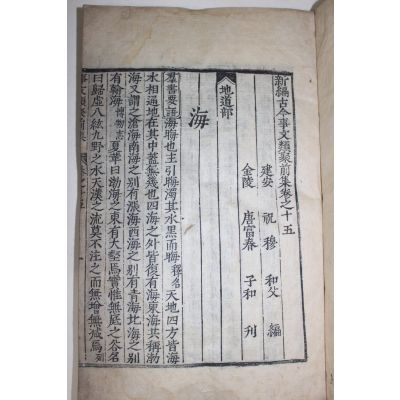 新編古今事文類聚前集卷之十五
建安 祝穆 和父 編
金陵 唐富春 子和 刊
地道部
海
羣書要語海晦也主引晦濁其水黑而晦釋名天地四方皆海
水相通地在其中蓋無幾也四海之外皆復有海東海共稱渤
海又謂之滄海南海之別有漲海西海之別有青海北海之別
有翰海博物志夏革曰渤海之東有大壑焉實惟無底之谷名
曰歸虛八紘九野之水天漢之流莫不注之而無增無减焉列